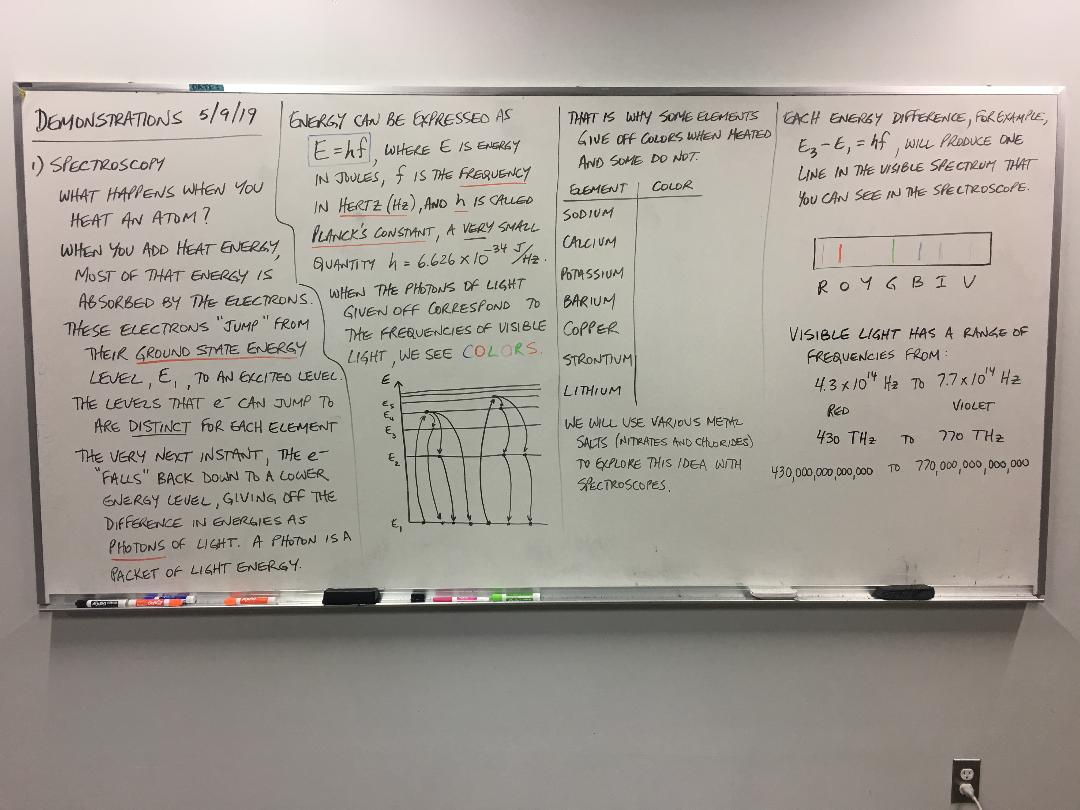 DATES
DEMONSTRATIONS 5/9/19
1) SPECTROSCOPY
WHAT HAPPENS WHEN YOU
HEAT AN ATOM?
WHEN YOU ADD HEAT ENERGY,
MOST OF THAT ENERGY IS
ABSORBED BY THE ELECTRONS.
THESE ELECTRONS "JUMP" FROM
THEIR GROUND STATE ENERGY
LEVEL, E₁, TO AN EXCITED LEVEL.
THE LEVELS THAT e⁻ CAN JUMP TO
ARE DISTINCT FOR EACH ELEMENT
THE VERY NEXT INSTANT, THE e⁻
"FALLS" BACK DOWN TO A LOWER
ENERGY LEVEL, GIVING OFF THE
DIFFERENCE IN ENERGIES AS
PHOTONS OF LIGHT. A PHOTON IS A
PACKET OF LIGHT ENERGY.
ENERGY CAN BE EXPRESSED AS
E = hf, WHERE E IS ENERGY
IN JOULES, f IS THE FREQUENCY
IN HERTZ (Hz), AND h IS CALLED
PLANCK'S CONSTANT, A VERY SMALL
QUANTITY h = 6.626 x 10⁻³⁴ J/Hz.
WHEN THE PHOTONS OF LIGHT
GIVEN OFF CORRESPOND TO
THE FREQUENCIES OF VISIBLE
LIGHT, WE SEE COLORS.
E
E₅
E₄
E₃
E₂
E₁
THAT IS WHY SOME ELEMENTS
GIVE OFF COLORS WHEN HEATED
AND SOME DO NOT.
ELEMENT COLOR
SODIUM
CALCIUM
POTASSIUM
BARIUM
COPPER
STRONTIUM
LITHIUM
WE WILL USE VARIOUS METAL
SALTS (NITRATES AND CHLORIDES)
TO EXPLORE THIS IDEA WITH
SPECTROSCOPES.
EACH ENERGY DIFFERENCE, FOR EXAMPLE,
E₃ - E₁ = hf, WILL PRODUCE ONE
LINE IN THE VISIBLE SPECTRUM THAT
YOU CAN SEE IN THE SPECTROSCOPE.
R O Y G B I V
VISIBLE LIGHT HAS A RANGE OF
FREQUENCIES FROM:
4.3 x 10¹⁴ Hz TO 7.7 x 10¹⁴ Hz
RED VIOLET
430 THz TO 770 THz
430,000,000,000,000 TO 770,000,000,000,000